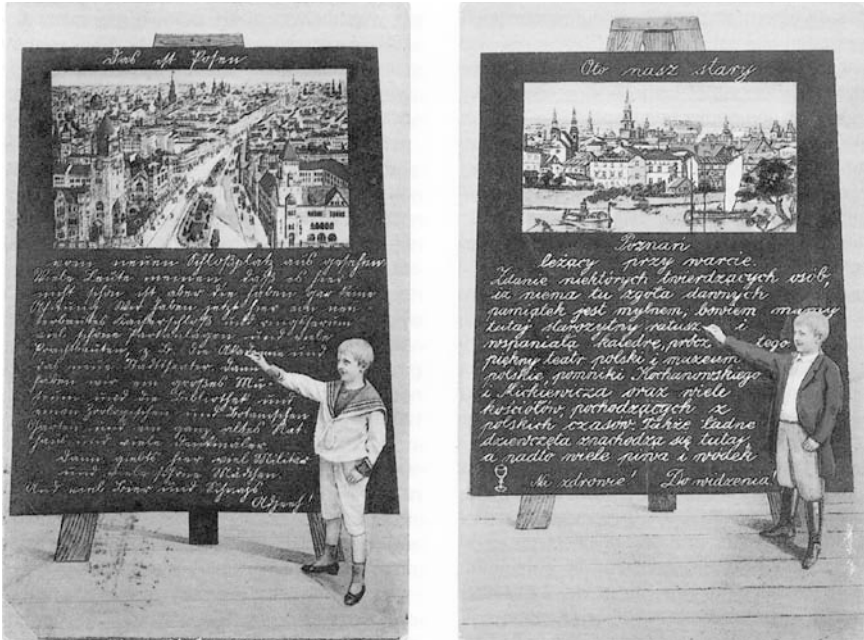 Das ist Posen
vom neuen Schloßplatz aus gesehen.
Viele Leute meinen, daß es hier
nicht schön ist aber die haben gar keine
Ahnung. Wir haben jetzt hier ein neu
erbautes Kaiserschloß mit ringsherum
schöne Parkanlagen und viele
Prachtbauten, z. B. die Akademie und
das neue Stadttheater. Dann
haben wir ein großes Mu-
seum und die Bibliothek und
einen Zoologischen und Botanischen
Garten und ein ganz altes Rat-
haus und viele Denkmäler.
Dann giebts hier viel Militär
und viele schöne Mädchen
Und viel Bier und Schnaps.
Oto nasz stary
Poznań
leżący przy warcie.
Zdanie niektórych twierdzących osób,
iż niema tu zgoła dawnych
pamiątek jest mylnem, bowiem mamy
tutaj starożytny ratusz i
wspaniałą katedrę, prócz tego
piękny teatr polski i muzeum
polskie, pomniki Kochanowskiego
i Mickiewicza oraz wiele
kościołów, pochodzących z
polskich czasów. Także ładne
dziewczęta znachodzą się tutaj,
a nadto wiele piwa i wódek
Na zdrowie! Do widzenia!